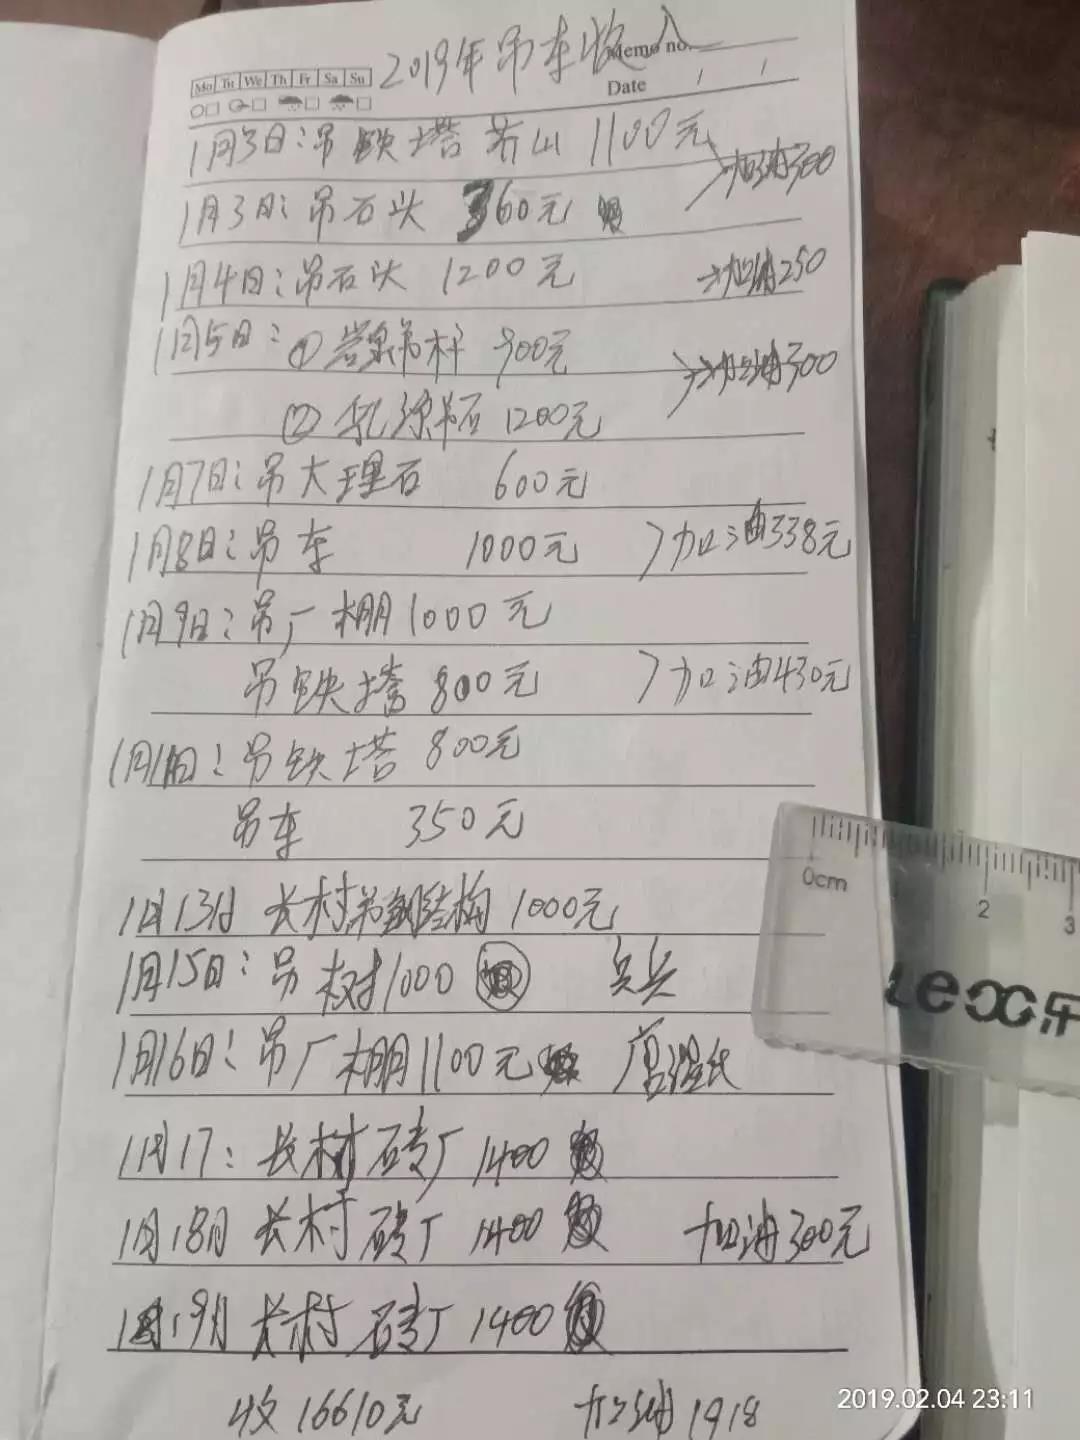 2019年吊车收入
Memo no.
Mo Tu We Th Fr Sa Su
Date / /
1月3日：吊铁塔 莽山 1100元
>加油300
1月3日：吊石头 360元
1月4日：吊石头 1200元 →加油250
1月5日：①岩泉吊杆 900元
>加油300
② 乳源吊石 1200元
1月7日：吊大理石 600元
1月8日：吊车 1000元 >加油338元
1月9日：吊厂棚1000元
吊铁塔 800元 >加油430元
吊铁塔 800元
吊车 350元
1月13日 长村吊钢结构 1000元
1月15日：吊树1000 兵兵
1月16日：吊厂棚1100元
1月17：长村砖厂 1400
1月18日 长村砖厂 1400 加油300元
1月19日 长村砖厂 1400
收16610元 加油1918
0cm 2 3
2019.02.04 23:11